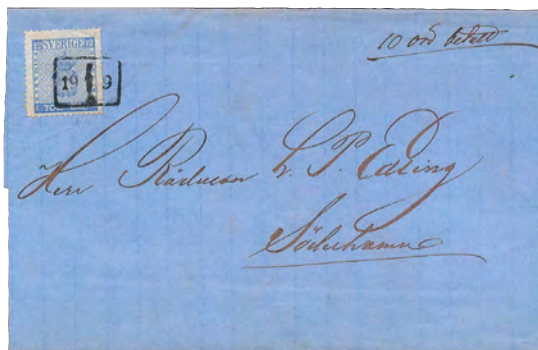 SVERIGE
19 9
TOLF
10 ord betalt
Herr Rådman L. P. Edling
Söderhamn